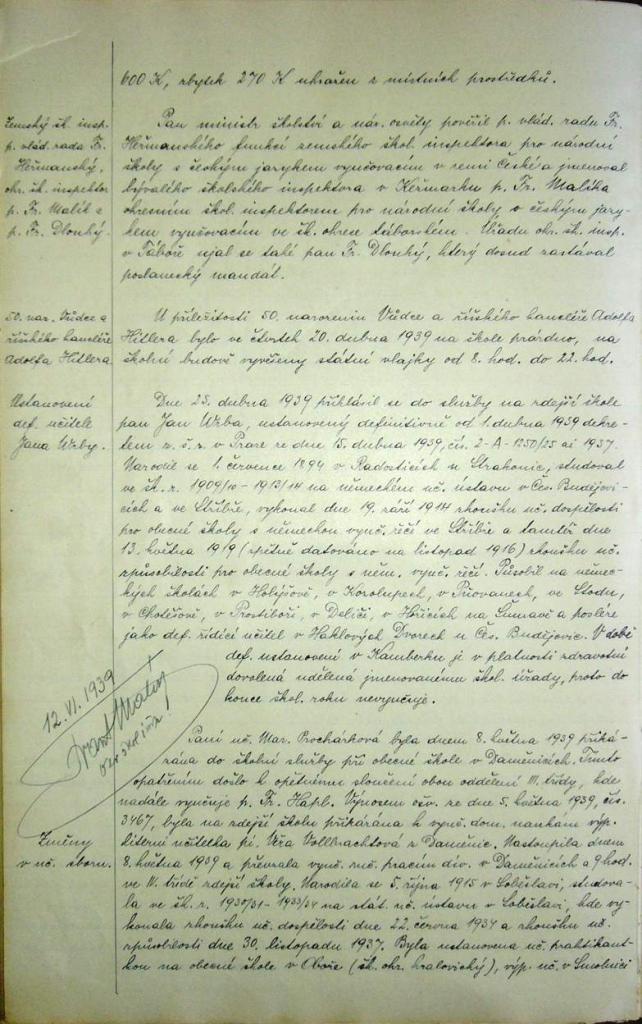 600 K, zbytek 270 K uhrazen z místních prostředků.
Zemský šk. insp.
p. vlád. rada Fr.
Heřmanský,
okr. šk. inspektor
p. Fr. Malík a
p. Fr. Dlouhý.
Pan ministr školství a nár. osvěty pověřil p. vlád. radu Fr.
Heřmanského funkcí zemského škol. inspektora pro národní
školy s českým jazykem vyučovacím v zemi České a jmenoval
bývalého školského inspektora v Kežmarku p. Fr. Malíka
okresním škol. inspektorem pro národní školy s českým jazy-
kem vyučovacím ve šk. okrese táborském. Úřadu okr. šk. insp.
v Táboře ujal se také pan Fr. Dlouhý, který dosud zastával
poslanecký mandát.
50. nar. Vůdce a
říšského kancléře
Adolfa Hitlera
U příležitosti 50. narozenin Vůdce a říšského kancléře Adolfa
Hitlera bylo ve čtvrtek 20. dubna 1939 na škole prázdno, na
školní budově vyvěšeny státní vlajky od 8. hod. do 22. hod.
Ustanovení
def. učitele
Jana Vrby.
Dne 25. dubna 1939 přihlásil se do služby na zdejší škole
pan Jan Vrba, ustanovený definitivně od 1. dubna 1939 dekre-
tem z. š. r. v Praze ze dne 15. dubna 1939, čís. 2-A-1250/25 ai 1937.
Narodil se 1. července 1894 v Radošticích u Strakonic, studoval
ve šk. r. 1909/10 - 1913/14 na německém uč. ústavu v Čes. Budějovi-
cích a ve Stříbře, vykonal dne 19. září 1914 zkoušku uč. dospělosti
pro obecné školy s německou vyuč. řečí ve Stříbře a tamtéž dne
13. května 1919 (zpětně datováno na listopad 1916) zkoušku uč.
způsobilosti pro obecné školy s něm. vyuč. řečí. Působil na němec-
kých školách v Holýšově, v Korolupech, v Trnovanech, ve Stodu,
v Chotěšově, v Prostiboři, v Hořicích na Šumavě a posléze
jako def. řídící učitel v Haklových Dvorech u Čes. Budějovic. V době
def. ustanovení v Kamberku je v platnosti zdravotní
dovolená udělená jmenovanému škol. úřady, proto do
konce škol. roku nevyučuje.
12. VI. 1939
Změny
v uč. sboru.
Paní uč. Mar. Procházková byla dnem 8. května 1939 přiká-
zána do školní služby při obecné škole v Daměnicích. Tímto
opatřením došlo k opětnému sloučení obou oddělení III. třídy, kde
nadále vyučuje p. Fr. Hápl. Výnosem ošv. ze dne 5. května 1939, čís.
3467, byla na zdejší školu přikázána k vyuč. dom. naukám výp.
literní učitelka pí. Věra Vollbrachtová z Daměnic. Nastoupila dnem
8. května 1939 a převzala vyuč. ruč. pracím dív. v Daměnicích a 9 hod.
ve IV. třídě zdejší školy. Narodila se 5. října 1915 v Soběslavi, studova-
la ve šk. r. 1930/31 - 1933/34 na stát. uč. ústavu v Soběslavi, kde vy-
konala zkoušku uč. dospělosti dne 22. června 1934 a zkoušku uč.
způsobilosti dne 30. listopadu 1937. Byla ustanovena uč. praktikant-
kou na obecné škole v Oboře (šk. okr. kralovický), výp. uč. v Smolnici